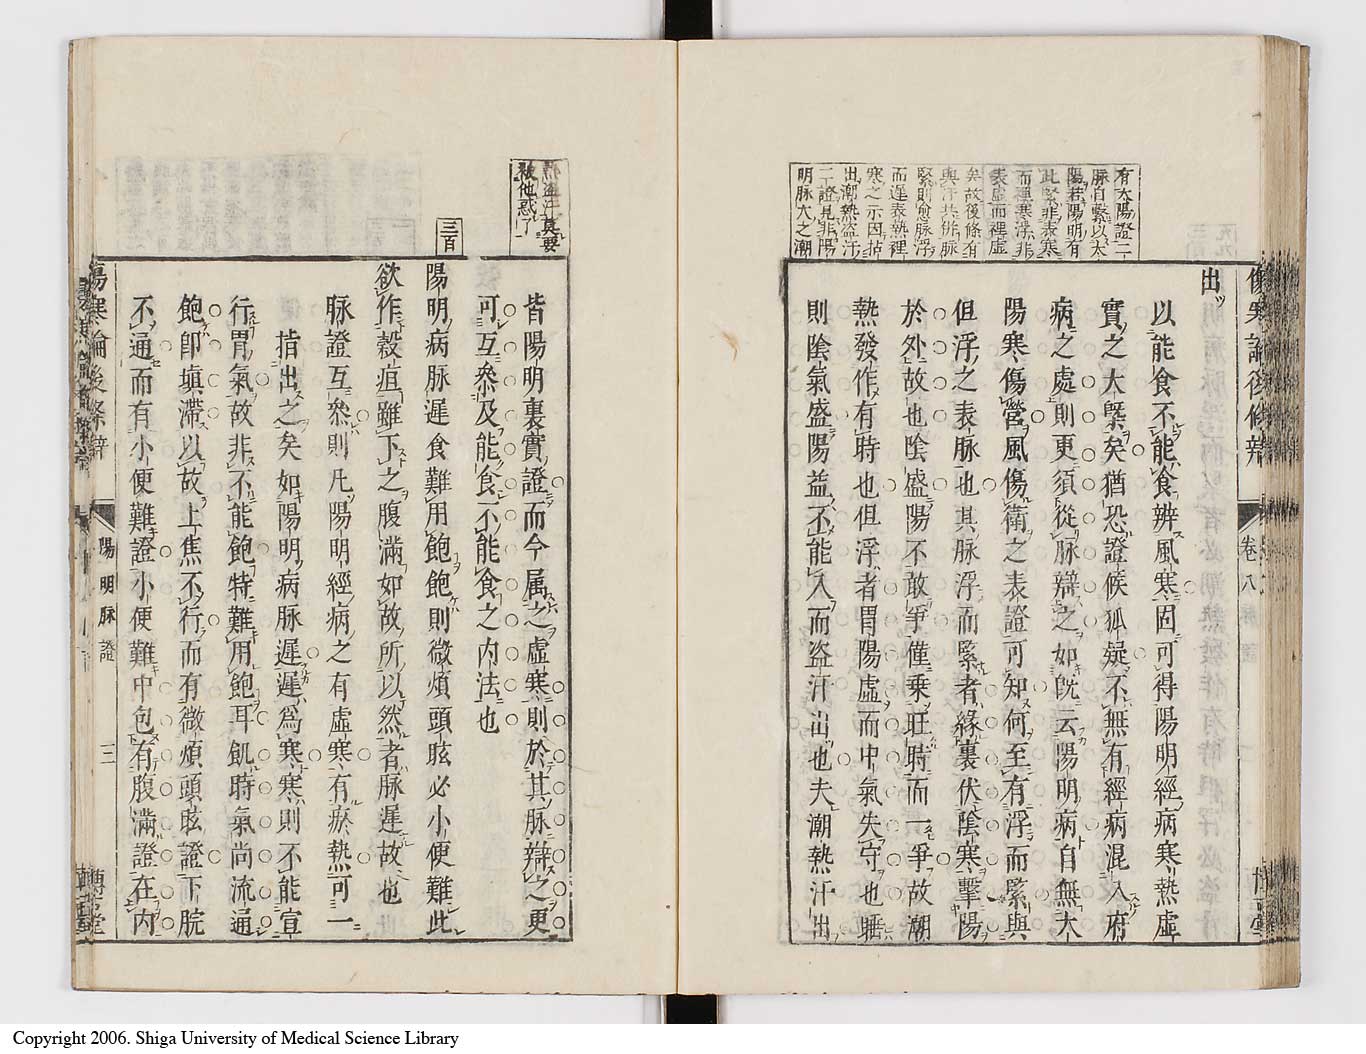 有太陽證二
脉自緊以太
陽若陽明有
此緊非表寒
而裡寒浮非
表虚而裡虚
矣故後條有
與汗共併脉
緊則愈脉浮
而遲表熱裡
寒之示因拈
出潮熱盗汗
二證見非陽
明脉大之潮
傷寒論後條辨
卷八
出
以能食不能食辨風寒固可得陽明經病寒熱虚
實之大槩矣猶恐證候狐疑不無有經病混入府
病之處則更須從脉辯之如旣云陽明病自無大
陽寒傷營風傷衛之表證可知何至有浮而緊與
但浮之表脉也其脉浮而緊者緣裏伏陰寒擊陽
於外故也陰盛陽不敢爭僅乗旺時而一爭故潮
熱發作有時也但浮者胃陽虚而中氣失守也睡
則陰氣盛陽益不能入而盗汗出也夫潮熱汗出
熱盗汗莫要
被他惑了
三百
皆陽明裏實證而今属之虚寒則於其脉辯之更
可互叅及能食不能食之内法也
陽明病脉遲食難用飽飽則微煩頭眩必小便難此
欲作穀疸雖下之腹滿如故所以然者脉遲故也
脉證互叅則凡陽明經病之有虚寒有瘀熱可一
指出之矣如陽明病脉遲遲爲寒寒則不能宣
行胃氣故非不能飽特難用飽耳飢時氣尚流通
飽卽塡滯以故上焦不行而有微煩頭眩證下脘
不通而有小便難證小便難中包有腹滿證在内
傷寒論後條辨
陽明脉證
三